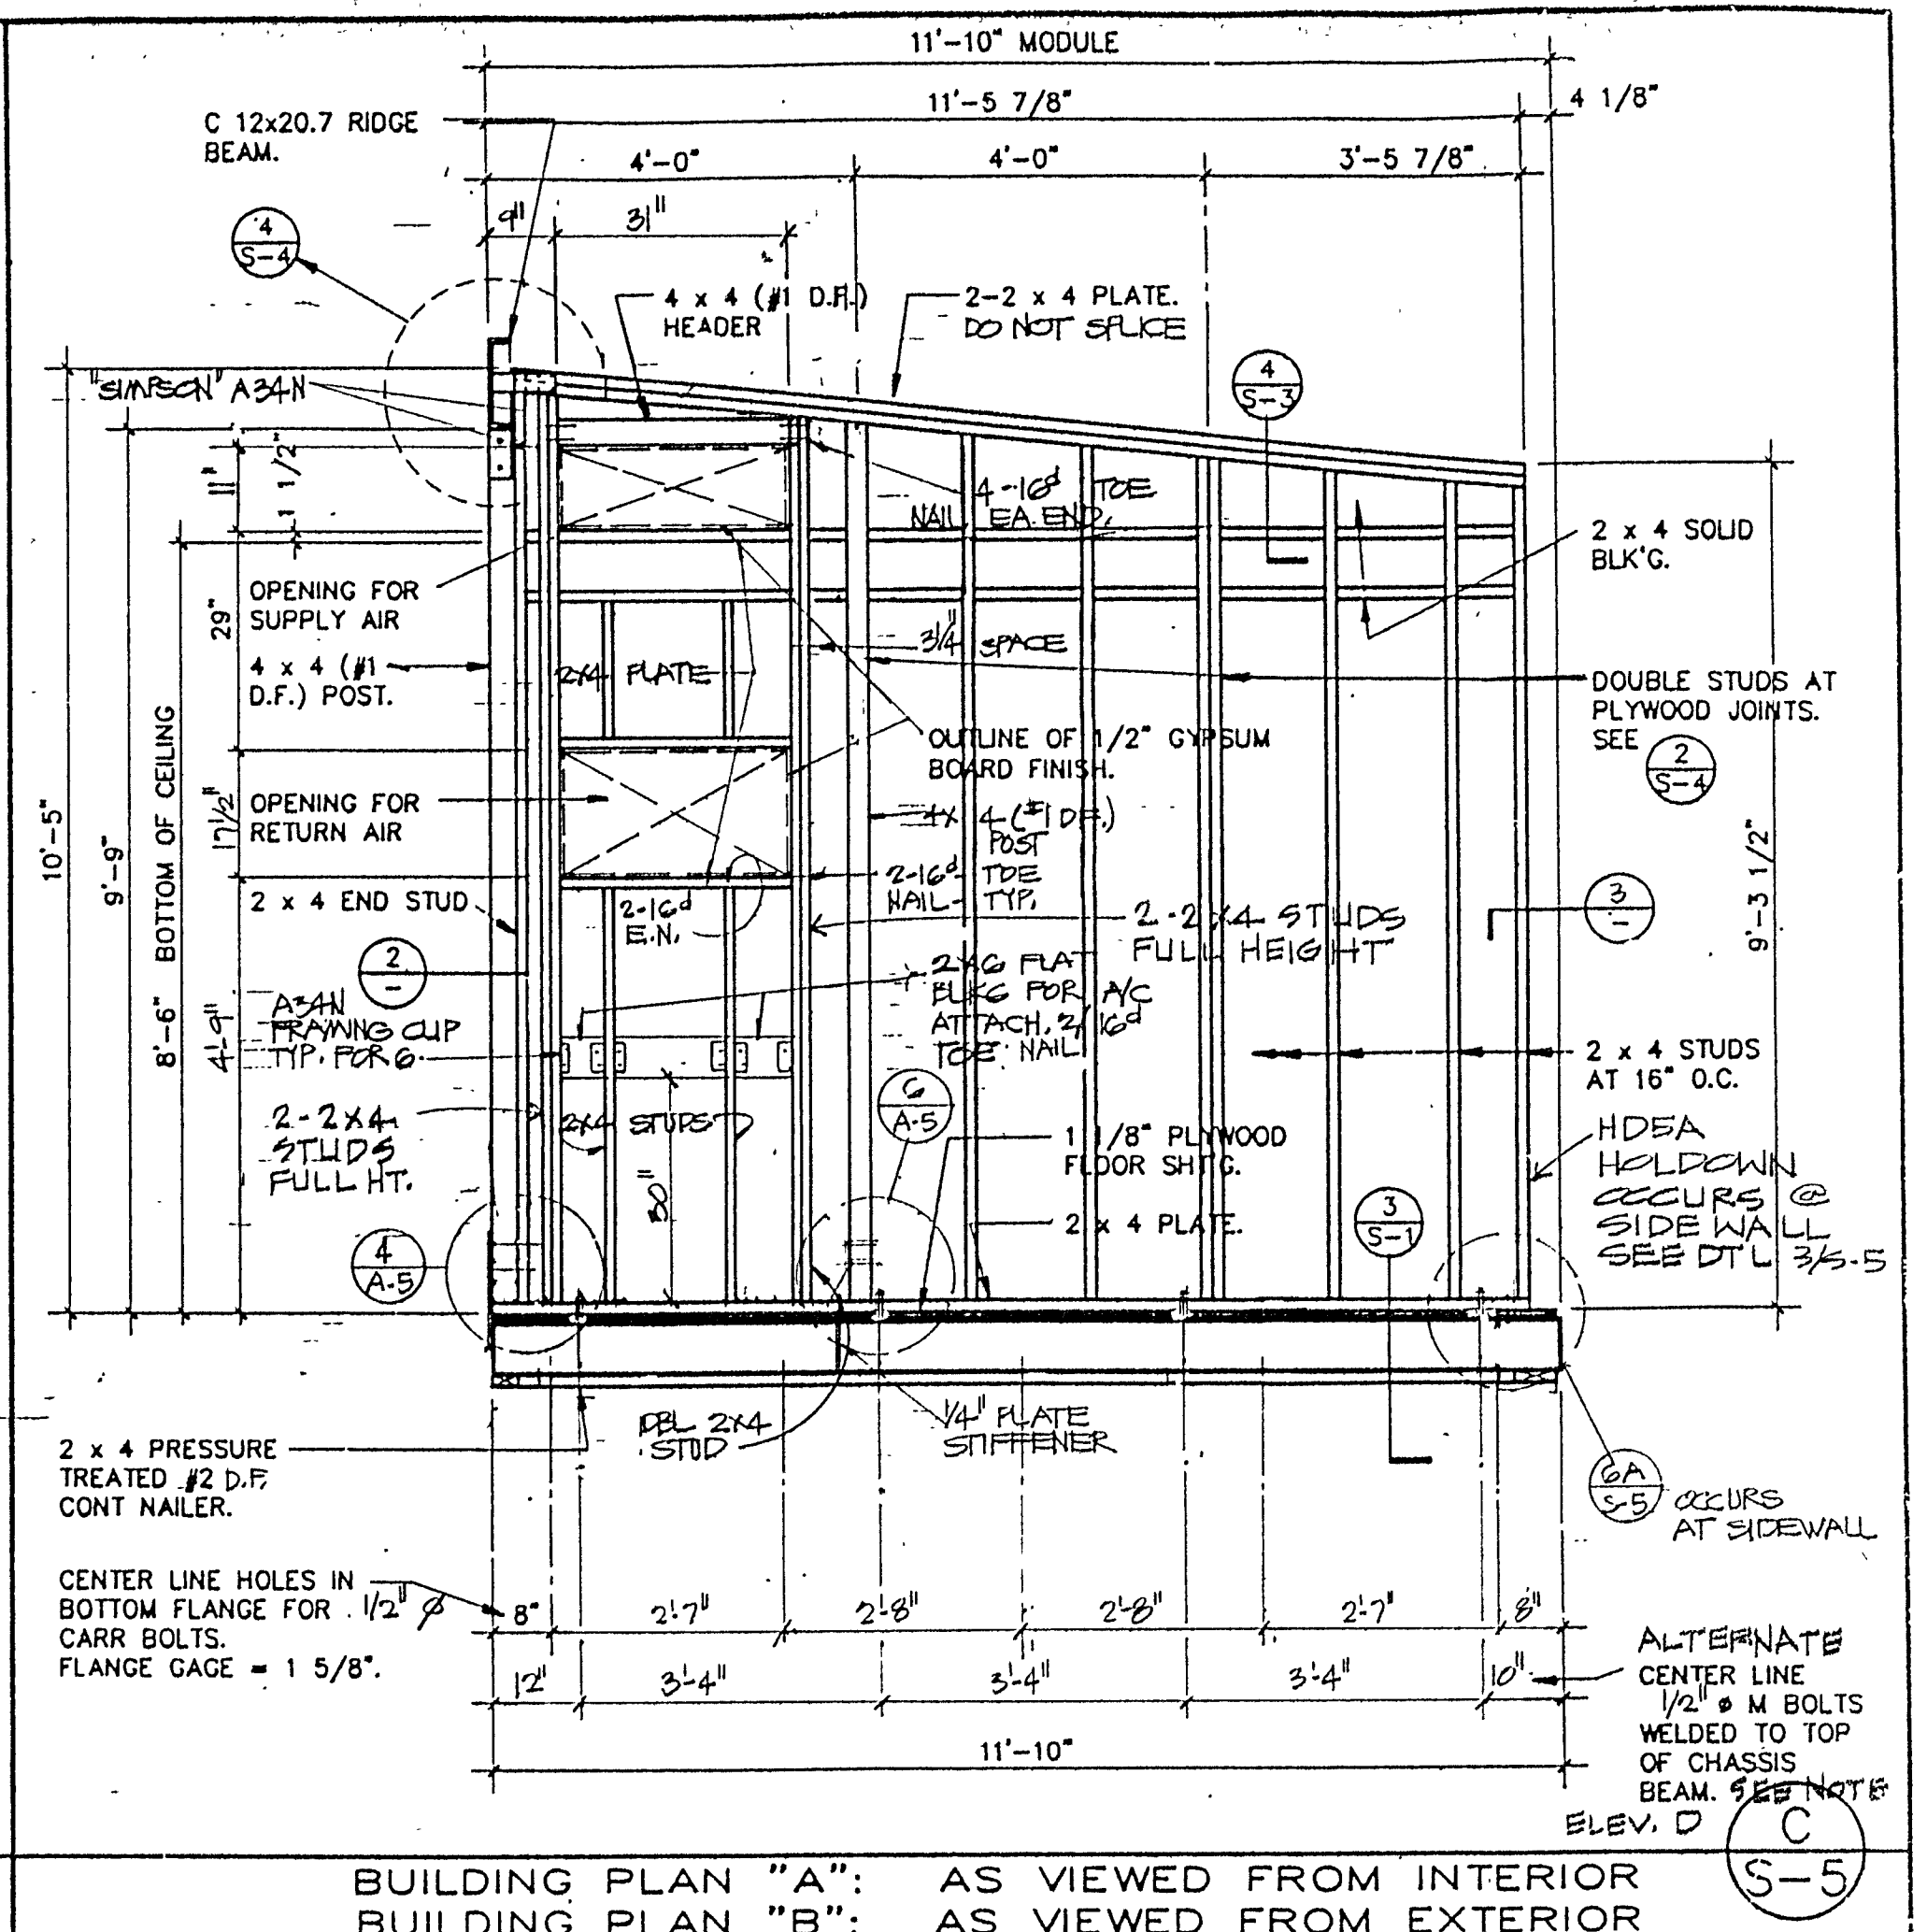 11'-10" MODULE
11'-5 7/8"
4 1/8"
C 12x20.7 RIDGE
BEAM.
4'-0"
4'-0"
3'-5 7/8"
9"
31"
4
S-4
4 x 4 (#1 D.F.)
HEADER
2-2 x 4 PLATE.
DO NOT SPLICE
4
S-3
"SIMPSON" A34N
11"
1 1/2"
4-16d TOE
NAIL EA. END.
2 x 4 SOLID
BLK'G.
OPENING FOR
SUPPLY AIR
29"
3 1/4" SPACE
4 x 4 (#1
D.F.) POST.
2x4 PLATE
DOUBLE STUDS AT
PLYWOOD JOINTS.
SEE
2
S-4
OUTLINE OF 1/2" GYPSUM
BOARD FINISH.
OPENING FOR
RETURN AIR
17 1/2"
4x 4 (#1 D.F.)
POST
10'-5"
9'-9"
8'-6" BOTTOM OF CEILING
9'-3 1/2"
2-16d TOE
NAIL TYP.
2 x 4 END STUD
2-16d
E.N.
2-2x4 STUDS
FULL HEIGHT
3
-
2
-
2x6 FLAT
BLKG FOR A/C
ATTACH. 2/16d
TOE NAIL
A34N
FRAMING CLIP
TYP. FOR 6.
4'-9"
2 x 4 STUDS
AT 16" O.C.
6
A-5
2-2x4
STUDS
FULL HT.
2x4 STUDS
1 1/8" PLYWOOD
FLOOR SHT'G.
HD5A
HOLDOWN
OCCURS @
SIDE WALL
SEE DTL 3/S-5
30"
2 x 4 PLATE.
3
S-1
4
A-5
DBL 2x4
STUD
1/4" PLATE
STIFFENER
2 x 4 PRESSURE
TREATED #2 D.F.
CONT NAILER.
6A
S-5
OCCURS
AT SIDEWALL
CENTER LINE HOLES IN
BOTTOM FLANGE FOR 1/2" ø
CARR BOLTS.
FLANGE GAGE = 1 5/8".
8"
2'-7"
2'-8"
2'-8"
2'-7"
8"
12"
3'-4"
3'-4"
3'-4"
10"
ALTERNATE
CENTER LINE
1/2" ø M BOLTS
WELDED TO TOP
OF CHASSIS
BEAM. SEE NOTE
11'-10"
ELEV. D
C
S-5
BUILDING PLAN "A": AS VIEWED FROM INTERIOR
BUILDING PLAN "B": AS VIEWED FROM EXTERIOR